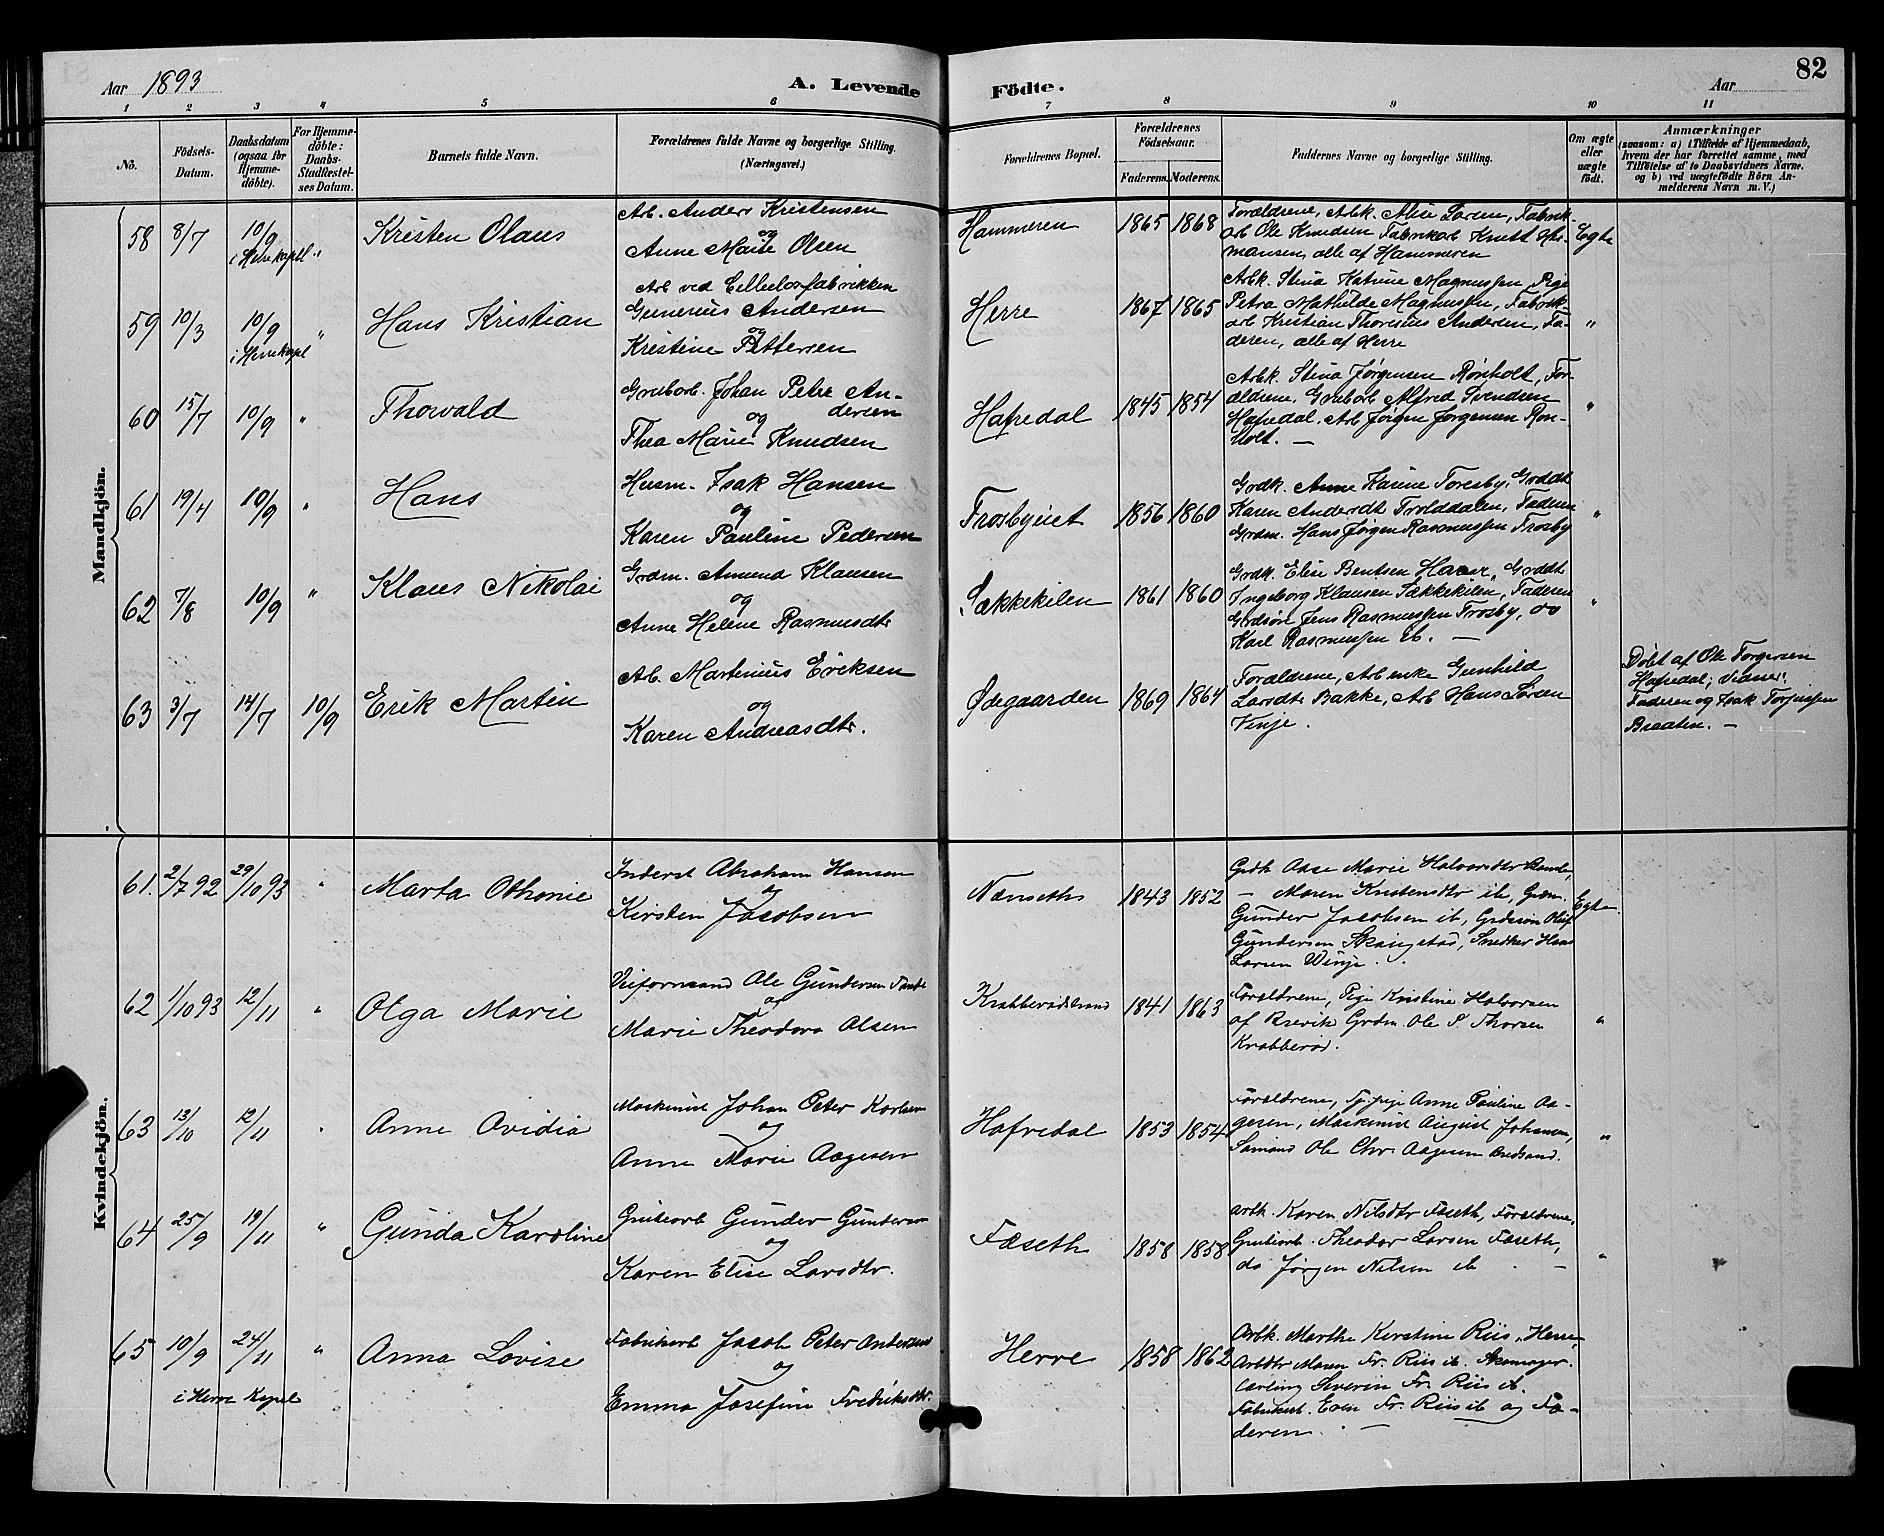 Aar 1893
A. Levende
Födte.
Aar
82
1 2 3 4 5 6 7 8 9 10 11
No.
Födsels-
Datum.
Daabsdatum
(ogsaa för
Hjemme-
döbte).
For Hjemme-
döbte:
Daabs-
Stadfestel-
ses Datum.
Barnets fulde Navn.
Forældrenes fulde Navne og borgerlige Stilling.
(Næringsvei.)
Forældrenes Bopæl.
Forældrenes
Födselsaar.
Faderens. Moderens.
Faddernes Navne og borgerlige Stilling.
Om ægte
eller
uægte
født.
Anmærkninger
(saasom: a) i Tilfælde af Hjemmedaab,
hvem der har forrettet samme, med
Tilföielse af to Daabsvidners Navne.
og b) ved uægtefödte Börn An-
melderens Navn m. V.)
Mandkjön.
58 8/7 10/9 "
i Herre kapel
Kristen Olaus
Arb. Anders Kristensen
og
Anne Marie Olsen
Hammeren 1865 1868
Forældrene, Arbk. Alise Larsen, Fabrik-
arb Ole Knudsen Fabrikarb Knut Her-
mansen, alle af Hammeren
Egte
59 10/3 10/9 "
i Herre kapel
Hans Kristian
Arb ved Cellulosfabrikken
Gunerius Andersen
og
Kristine Pettersen
Herre 1867 1865
Arbk. Stina Katrine Magnussen, Pige
Petra Mathilde Magnussen, Fabrik-
arb Kristian Thorenius Andersen, Fa-
deren, alle af Herre
"
60 15/7 10/9 "
Thorvald
Grubarb. Johan Peter An-
dersen
og
Thea Marie Knudsen
Hafredal 1845 1854
Arbk. Stina Jørgensen Rønholt, For-
ældrene, Grubarb Alfred Svendsen
Hafredal, Arb Jørgen Jørgensen Røn-
holt. —
"
61 19/4 10/9 "
Hans
Husm. Isak Hansen
og
Karen Pauline Pedersen
Trosbyeiet 1856 1860
Grdk. Anne Karine Torsby, Grddt
Karen Andersdt Trolddalen, Faderen
Grdm. Hans Jørgen Rasmussen Trosby
"
62 7/8 10/9 "
Klaus Nikolai
Grdm. Amund Klausen
og
Anne Helene Rasmusdtr
Sækkekilen 1861 1860
Grdk. Elise Bentsen Haaer, Grddt
Ingeborg Klausen Sækkekilen, Faderen
Grdsøn Jens Rasmussen Trosby, og
Karl Rasmussen ib. —
"
63 3/7 14/7 10/9
Erik Martin
Arb. Martinius Eriksen
og
Karen Andreasdtr.
Ødegaarden 1869 1864
Forældrene, Arb enke Gunhild
Larsdtr Bakke, Arb Hans Larsen
Vinje.
Döbt af Ole Torgersen
Hafredal; Vidner:
Faderen og Isak Torjussen
Braaten. —
Kvindekjön.
61. 2/7 92 29/10 93 "
Marta Othonie
Inderst Abraham Hansen
og
Kirsten Jacobsen
Nenseth 1843 1852
Grdk Aase Marie Halvorsdtr Bamble,
— Maren Kristensdtr ib, Grdm.
Gunder Jacobsen ib, Grdsøn Oluf
Gundersen Skougstad, Snedker Hans
Larsen Winje.
Egte.
62 1/10 93 12/11 "
Olga Marie
Veiformand Ole Gundersen
og
Marie Theodora Olsen
Krabberødstrand 1841 1863
Forældrene, Pige Kristine Halvorsen
af Brevik Grdm. Ole P. Thorsen
Krabberød.
"
63 13/10 12/11 "
Anne Ovidia
Maskinist Johan Peter Karlsen
og
Anne Marie Aagesen
Hafredal 1853 1854
Forældrene, Pige Anne Pauline Aa-
gesen, Maskinist August Johansen,
Sømand Ole Chr. Aagesen
"
64 25/9 19/11 "
Gunda Karoline
Grubearb Gunder Gundersen
og
Karen Elise Larsdtr.
Fæseth 1858 1858
Arbk. Karen Nilsdtr Fæseth, Forældrene,
Grubarb. Theodor Larsen Fæseth,
do Jørgen Nilsen ib —
"
65 10/9 24/11 "
i Herre Kapel
Anna Lovise
Fabrikarb Jacob Peter Andersen
og
Emma Josefine Fredriksdtr.
Herre 1858 1862
Arbk. Marthe Kirstine Riis, Herre,
Arbdtr Maren Fr. Riis ib. Skomager-
lærling Severin Fr. Riis ib.
Fabrikarb. Even Fr. Riis ib og Fa-
deren. —